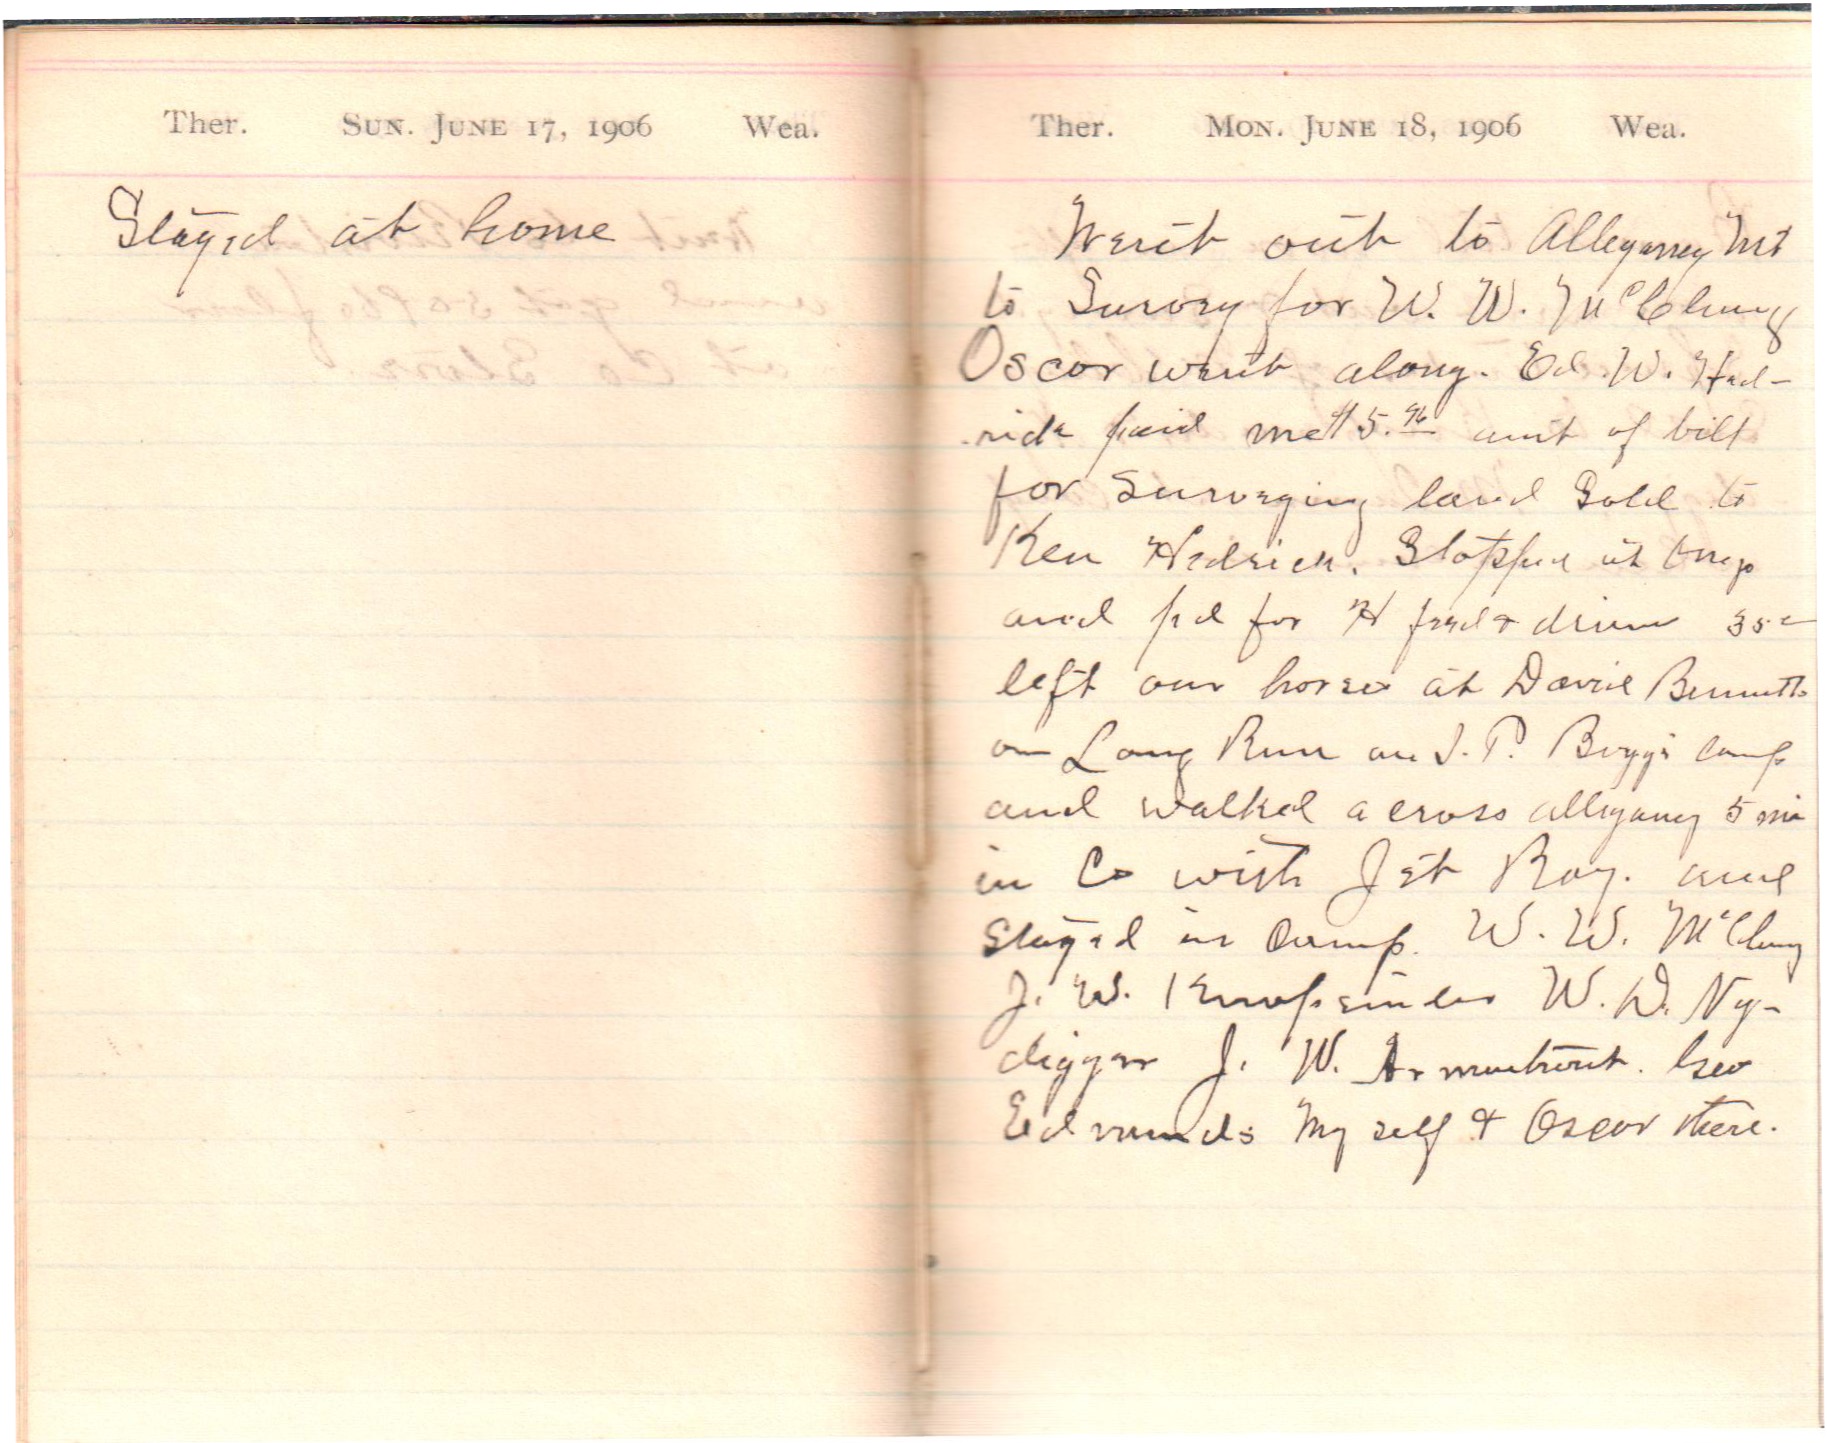 Ther. SUN. JUNE 17, 1906 Wea.
Stayed at home
Ther. MON. JUNE 18, 1906 Wea.
Went out to Allegany Mt
to Survey for W. W. McClung
Oscar went along. Ed. W. Hed-
rick paid me $5.96 amt of bill
for Surveying land Sold to
Ken Hedrick. Stopped at
and pd for H feed & dinner 35c
left our horses at David Bennetts
on Long Run on J. P. Boggs camp
and walked across allegany 5 mi
in Co with Jet Ray. and
Stayed in Camp. W. W. McClung
J. W. W. D. Ny-
digger J. W. Armentrout. Geo
Edmunds My self & Oscar there.